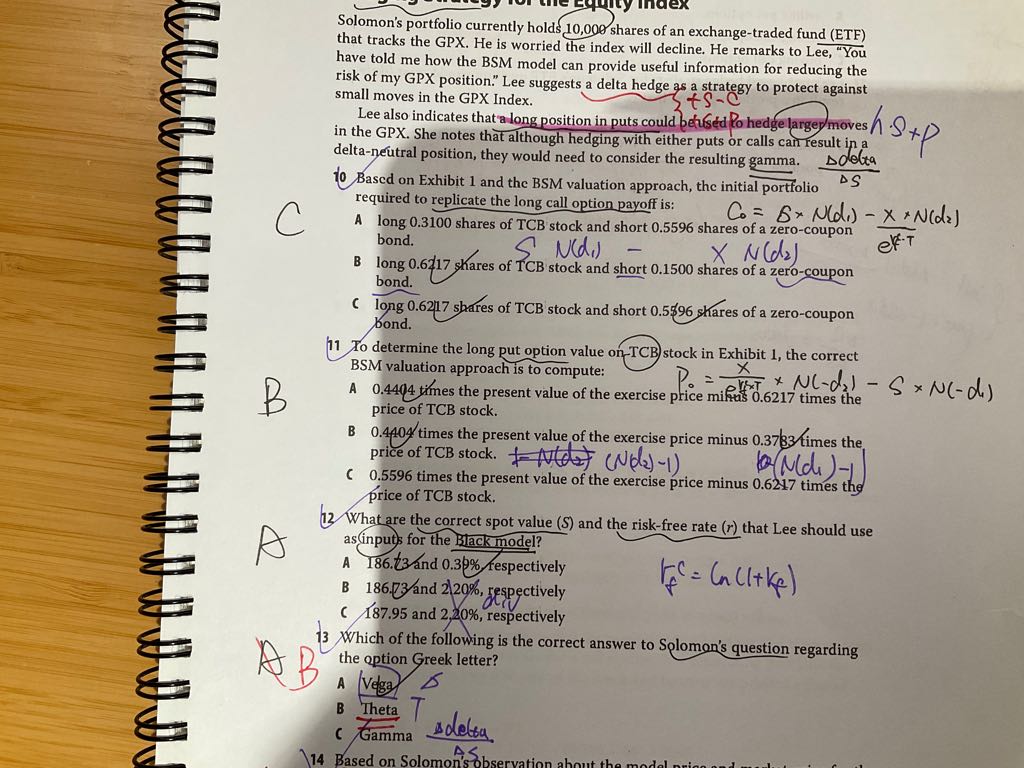 Strategy for the Equity Index
Solomon's portfolio currently holds 10,000 shares of an exchange-traded fund (ETF)
that tracks the GPX. He is worried the index will decline. He remarks to Lee, "You
have told me how the BSM model can provide useful information for reducing the
risk of my GPX position." Lee suggests a delta hedge as a strategy to protect against
small moves in the GPX Index.
+S-C
Lee also indicates that a long position in puts could be used to hedge larger moves
+S+P
h S+P
in the GPX. She notes that although hedging with either puts or calls can result in a
delta-neutral position, they would need to consider the resulting gamma.
Δdelta
ΔS
10 Based on Exhibit 1 and the BSM valuation approach, the initial portfolio
required to replicate the long call option payoff is:
C
C₀ = S × N(d₁) − X × N(d₂)
A long 0.3100 shares of TCB stock and short 0.5596 shares of a zero-coupon
bond.
S N(d₁) − X N(d₂)
B long 0.6217 shares of TCB stock and short 0.1500 shares of a zero-coupon
bond.
C long 0.6217 shares of TCB stock and short 0.5596 shares of a zero-coupon
bond.
11 To determine the long put option value on TCB stock in Exhibit 1, the correct
BSM valuation approach is to compute:
P₀ = X × N(-d₂) − S × N(-d₁)
B
A 0.4404 times the present value of the exercise price minus 0.6217 times the
price of TCB stock.
B 0.4404 times the present value of the exercise price minus 0.3783 times the
price of TCB stock.
1-N(d₂) (N(d₂)-1) (N(d₁)-1)
C 0.5596 times the present value of the exercise price minus 0.6217 times the
price of TCB stock.
12 What are the correct spot value (S) and the risk-free rate (r) that Lee should use
as inputs for the Black model?
A
A 186.73 and 0.39%, respectively
B 186.73 and 2.20%, respectively
div
C 187.95 and 2.20%, respectively
13 Which of the following is the correct answer to Solomon's question regarding
the option Greek letter?
A B
A Vega
B Theta T
C Gamma Δdelta
ΔS
14 Based on Solomon's observation about the model price and